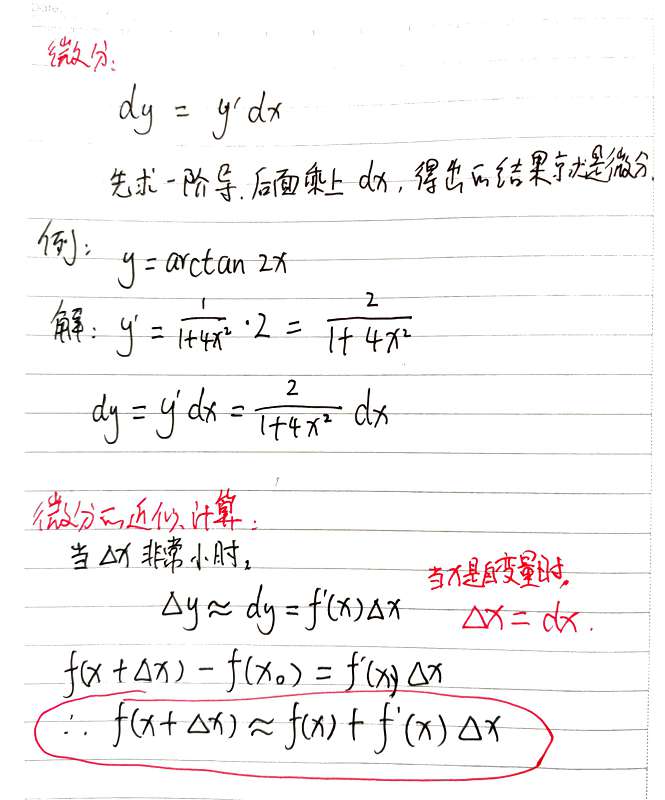 微分:
dy = y' dx
先求一阶导, 后面乘上 dx, 得出的结果就是微分.
例: y = arctan 2x
解: y' = \frac{1}{1+4x²} · 2 = \frac{2}{1+4x²}
dy = y' dx = \frac{2}{1+4x²} dx
微分的近似计算:
当 Δx 非常小时,
当x是自变量时,
Δy ≈ dy = f'(x) Δx
Δx = dx.
f(x + Δx) - f(x₀) = f'(x) Δx
∴ f(x + Δx) ≈ f(x) + f'(x) Δx